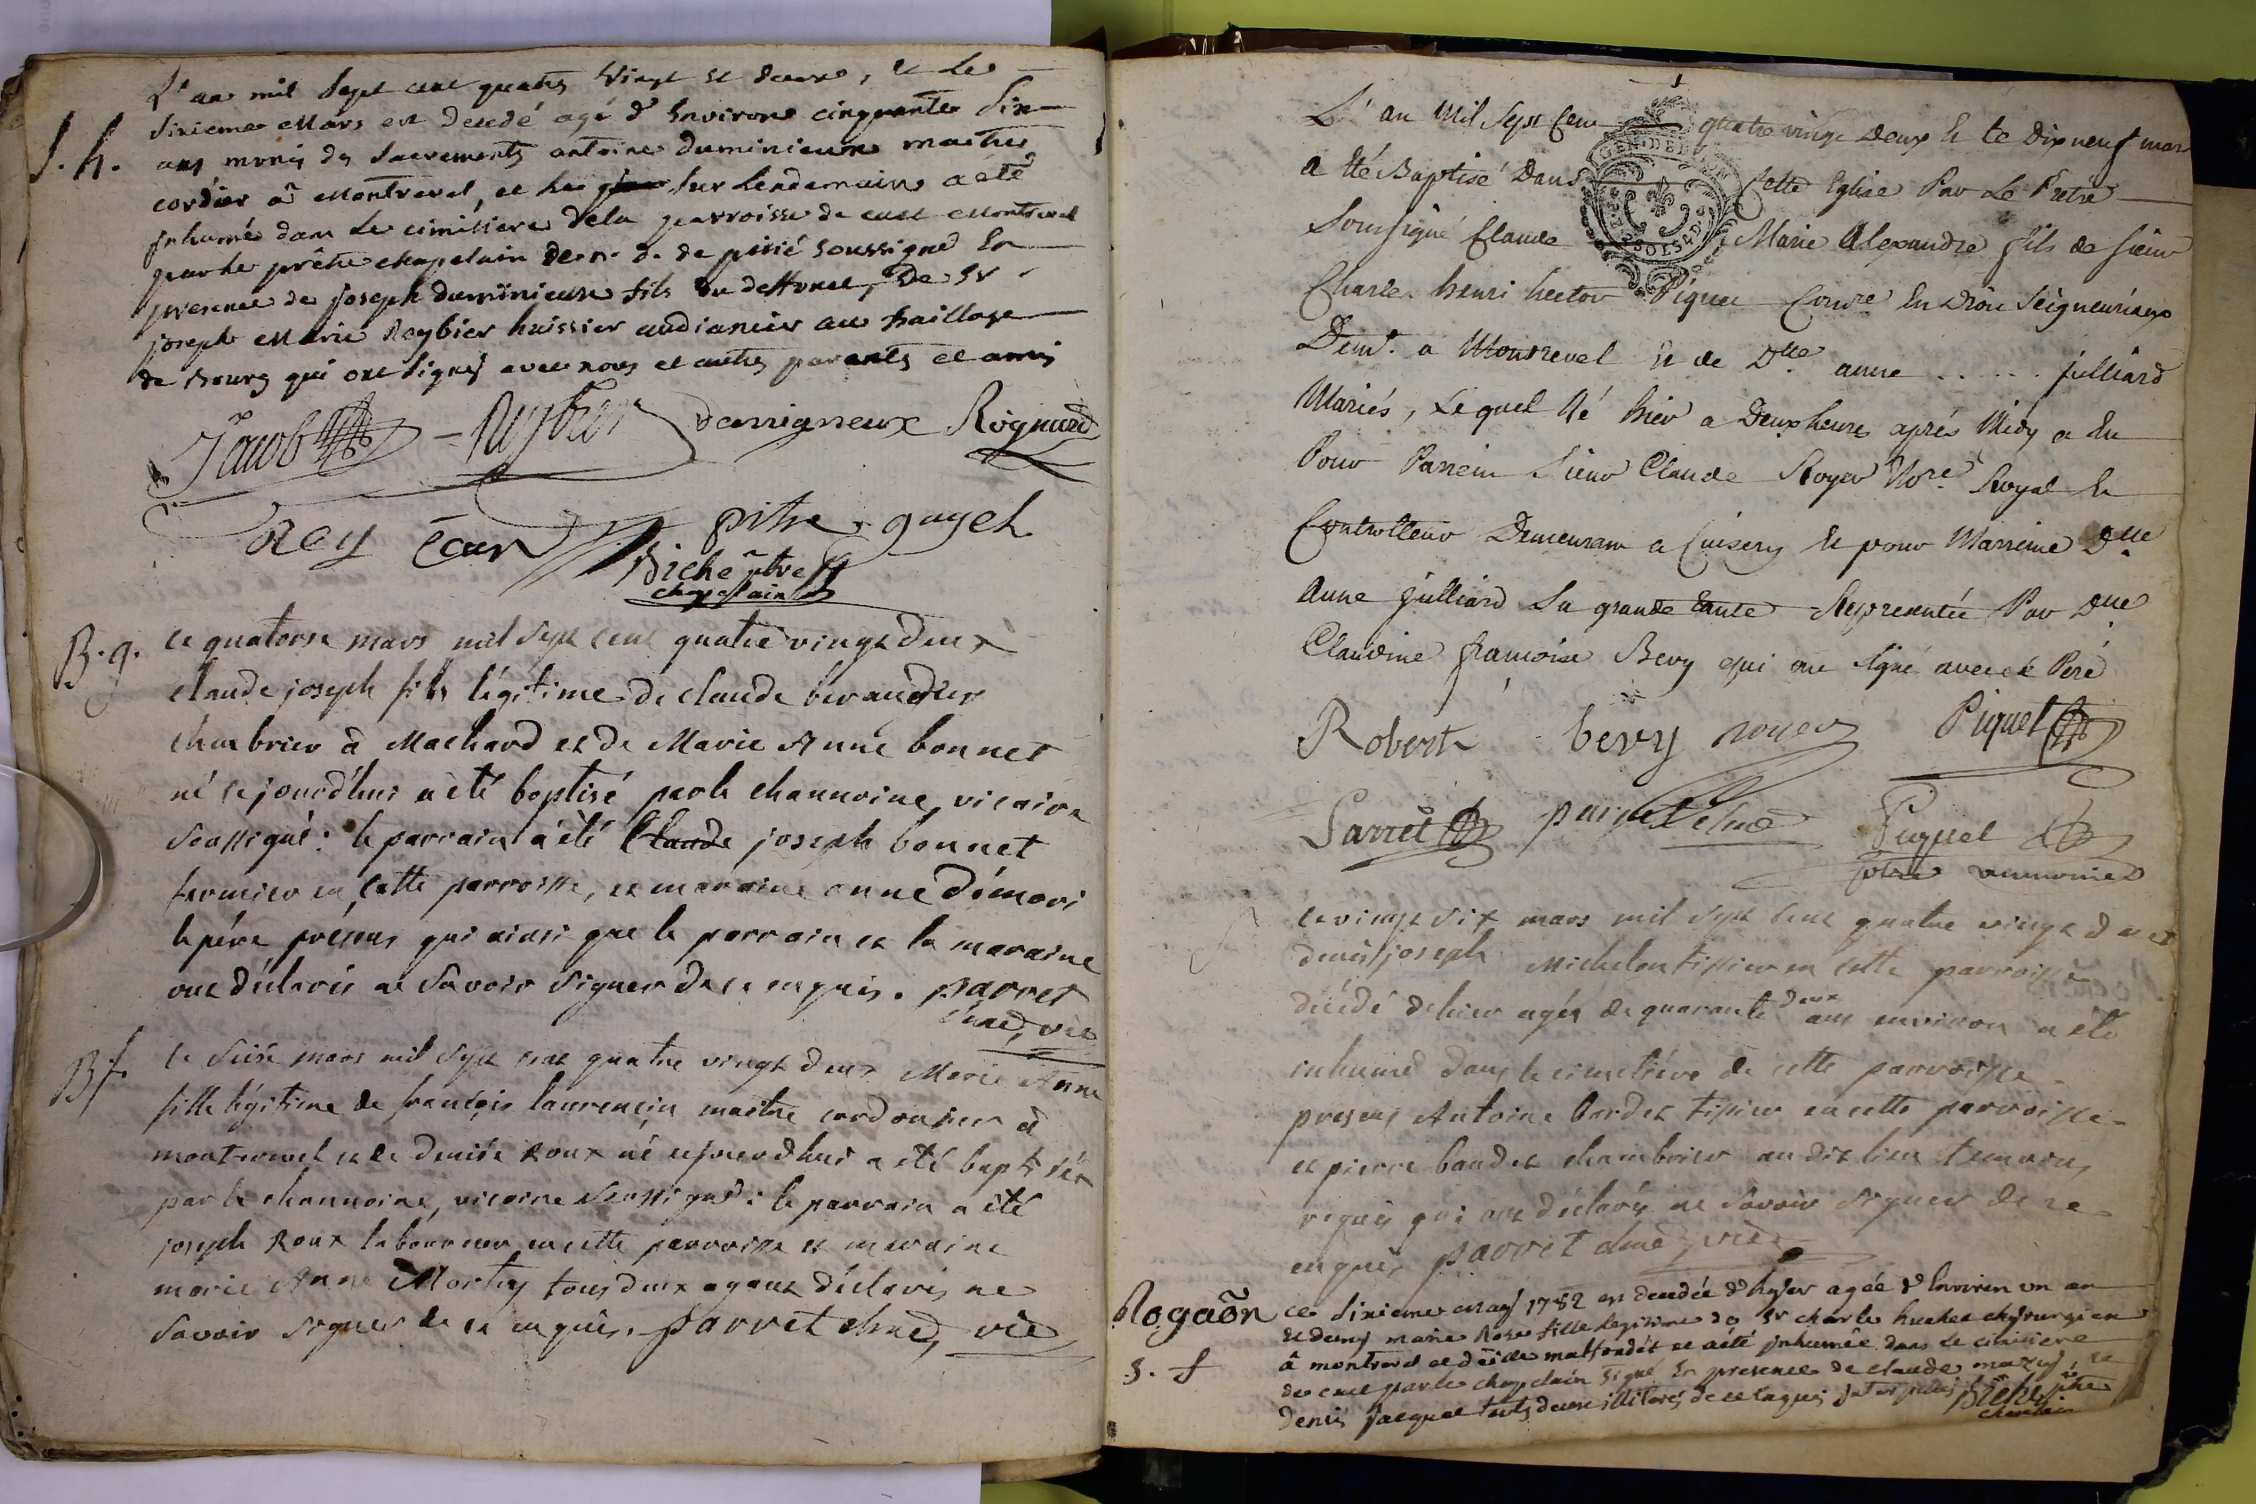 S. h.
L'an mil sept cent quatre vingt et deux, et le
sixieme Mars est decedé agé d'environ cinquante six
ans muni des sacrements antoine duminieux maitre
cordier â Montrevel, et le jour sur lendemain a eté
inhumé dans le cimitiere dela parroisse de cuet Montrevel
par le prêtre chapelain de n. d. de pitié soussigné En
presence de joseph duminieux fils du deffunct, De Sr
joseph Marie Reybier huissier audiancier au baillage
de Bourg qui ont signés avec nous et autres parents et amis
Jacob Reybier Rognard
Rey pitre guyet
Biche ptre
chapelain
B. g.
Le quatorse mars mil sept cent quatre vingt deux
claude joseph fils légitime de claude beraudier
chambrier à Machard et de Marie Anne bonnet
né cejourd'hui a été baptisé par le channoine, vicaire
soussigné: le parrain a été Claude joseph bonnet
fermier en cette parroisse, et maraine anne démori
le père présens qui ainsi que le parrain et la maraine
ont déclarés ne savoir signer de ce enquis. parret
chne, vic
B f.
le seise mars mil sept cent quatre vingt deux Marie Anne
fille légitime de françois laurencin maitre cordonier à
montrevel et de denise Roux né cejourd'hui a été baptisée
par le channoine, vicaire soussigné: le parrain a été
joseph Roux laboureur en cette parroisse et maraine
marie Anne Morthy tous deux ayant déclarés ne
savoir signer de ce enquis. parret chne, vic
L'an Mil Sept Cent quatre vingt Deux Et le Dix neuf mars
a Eté Baptisé Dans Cette Eglise Par Le Pretre
Soussigné Claude Marie Alexandre fils de sieur
Charle henri hector Piquet Comre En Droit Seigneuriaux
Demt. a Montrevel Et de Dlle anne ..... julliard
Mariés, Lequel Né hier a Deux heures aprés Midy a Eu
Pour Parrein Sieur Claude Royer Nore Royal Et
Controlleur Demeurant a Cuisery Et pour Marreine Dlle
Anne julliard Sa grande tante Representée Par Dlle
Claudine françoise Bevy qui ont signé avec le Peré
Robert bevy royer Piquet
Parret parret chne Piquet
ptre aumonier
Le vingt six mars mil sept cent quatre vingt deux
denis joseph Michelon tissier en cette parroisse
décédé d'hier agés de quarante deux ans environ a été
inhumé dans le cimetière de cette parroisse
presens Antoine bardet tissier en cette parroisse
et pierre baudet chambrier au dit lieu temoins
requis qui ont déclarés ne savoir signer de ce
enquis parret chne, vic
Rogaõn
S. f
ce sixieme may 1782 est decedée d'hyer agée d'Environ un an
et demy marie Rose fille legitime de Sr charle huchet chirurgien
â montrevel et a eté inhumée dans le cimitiere
de cuet par le chapelain signé En presence de claude et
denis jacquet touts deux illiterés de ce enquis Biche ptre
chapelain